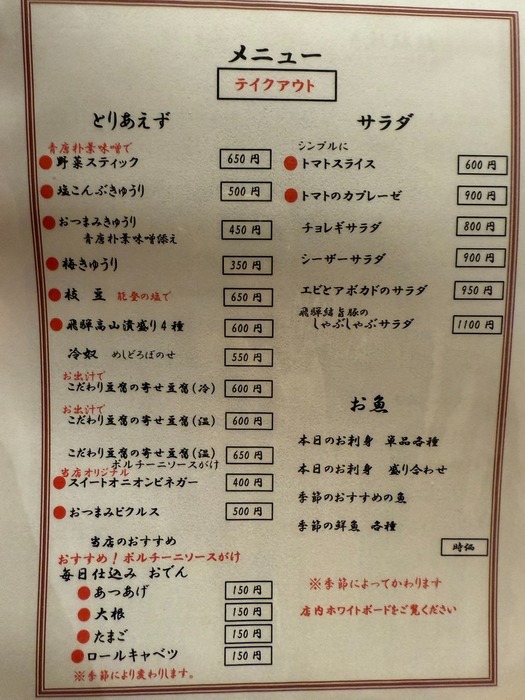 メニュー
テイクアウト
とりあえず
青唐朴葉味噌で
野菜スティック 650円
塩こんぶきゅうり 500円
おつまみきゅうり 450円
青唐朴葉味噌添え
梅きゅうり 350円
枝豆 能登の塩で 650円
飛騨高山漬盛り4種 600円
冷奴 めしどろぼのせ 550円
お出汁で
こだわり豆腐の寄せ豆腐(冷) 600円
お出汁で
こだわり豆腐の寄せ豆腐(温) 600円
こだわり豆腐の寄せ豆腐(温) 650円
ポルチーニソースがけ
当店オリジナル
スイートオニオンビネガー 400円
おつまみピクルス 500円
当店のおすすめ
おすすめ!ポルチーニソースがけ
毎日仕込み おでん
あつあげ 150円
大根 150円
たまご 150円
ロールキャベツ 150円
※季節により変わりします。
サラダ
シンプルに
トマトスライス 600円
トマトのカプレーゼ 900円
チョレギサラダ 800円
シーザーサラダ 900円
エビとアボカドのサラダ 950円
飛騨結旨豚の
しゃぶしゃぶサラダ 1100円
お魚
本日のお刺身 単品各種
本日のお刺身 盛り合わせ
季節のおすすめの魚
季節の鮮魚 各種
時価
※季節によってかわります
店内ホワイトボードをご覧ください